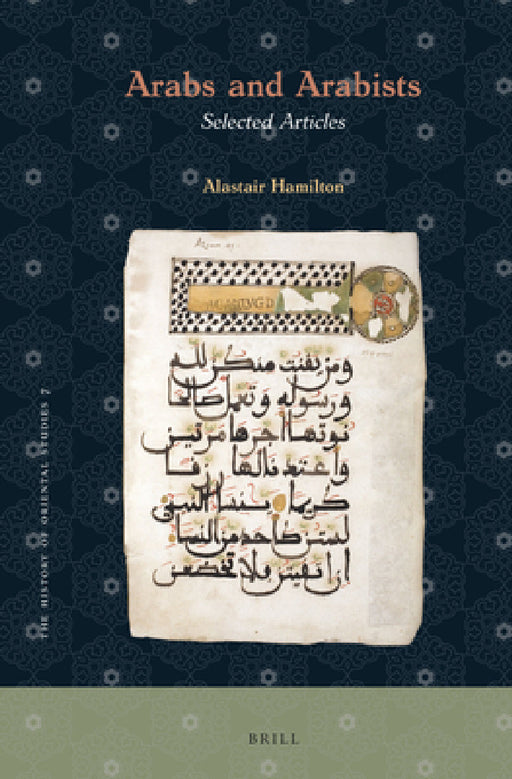 Arabs and Arabists
Selected Articles
Alastair Hamilton
ومن يقنت منكن لله
ورسوله وتعمل صالحا
نوتها اجرها مرتين
واعتدنا لها رزقا
كريما ينسا النبي
لستن كاحد من النسا
ان اتقيتن فلا تخضعن
THE HISTORY OF ORIENTAL STUDIES 7
BRILL